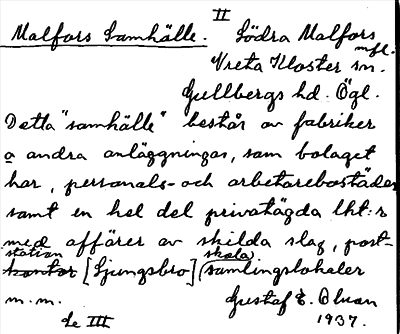 II
Malfors Samhälle. Södra Malfors
mfl.
Vreta Kloster sn.
Gullbergs hd. Ögl.
Detta "samhälle" består av fabriker
o andra anläggningar, som bolaget
har, personals- och arbetarebostäder
samt en hel del privatägda lht:r
med affärer av skilda slag, post-
station skola,
kontor [Ljungsbro] samlingslokaler
m.m. Gustaf E. Olsson
Se III 1937.